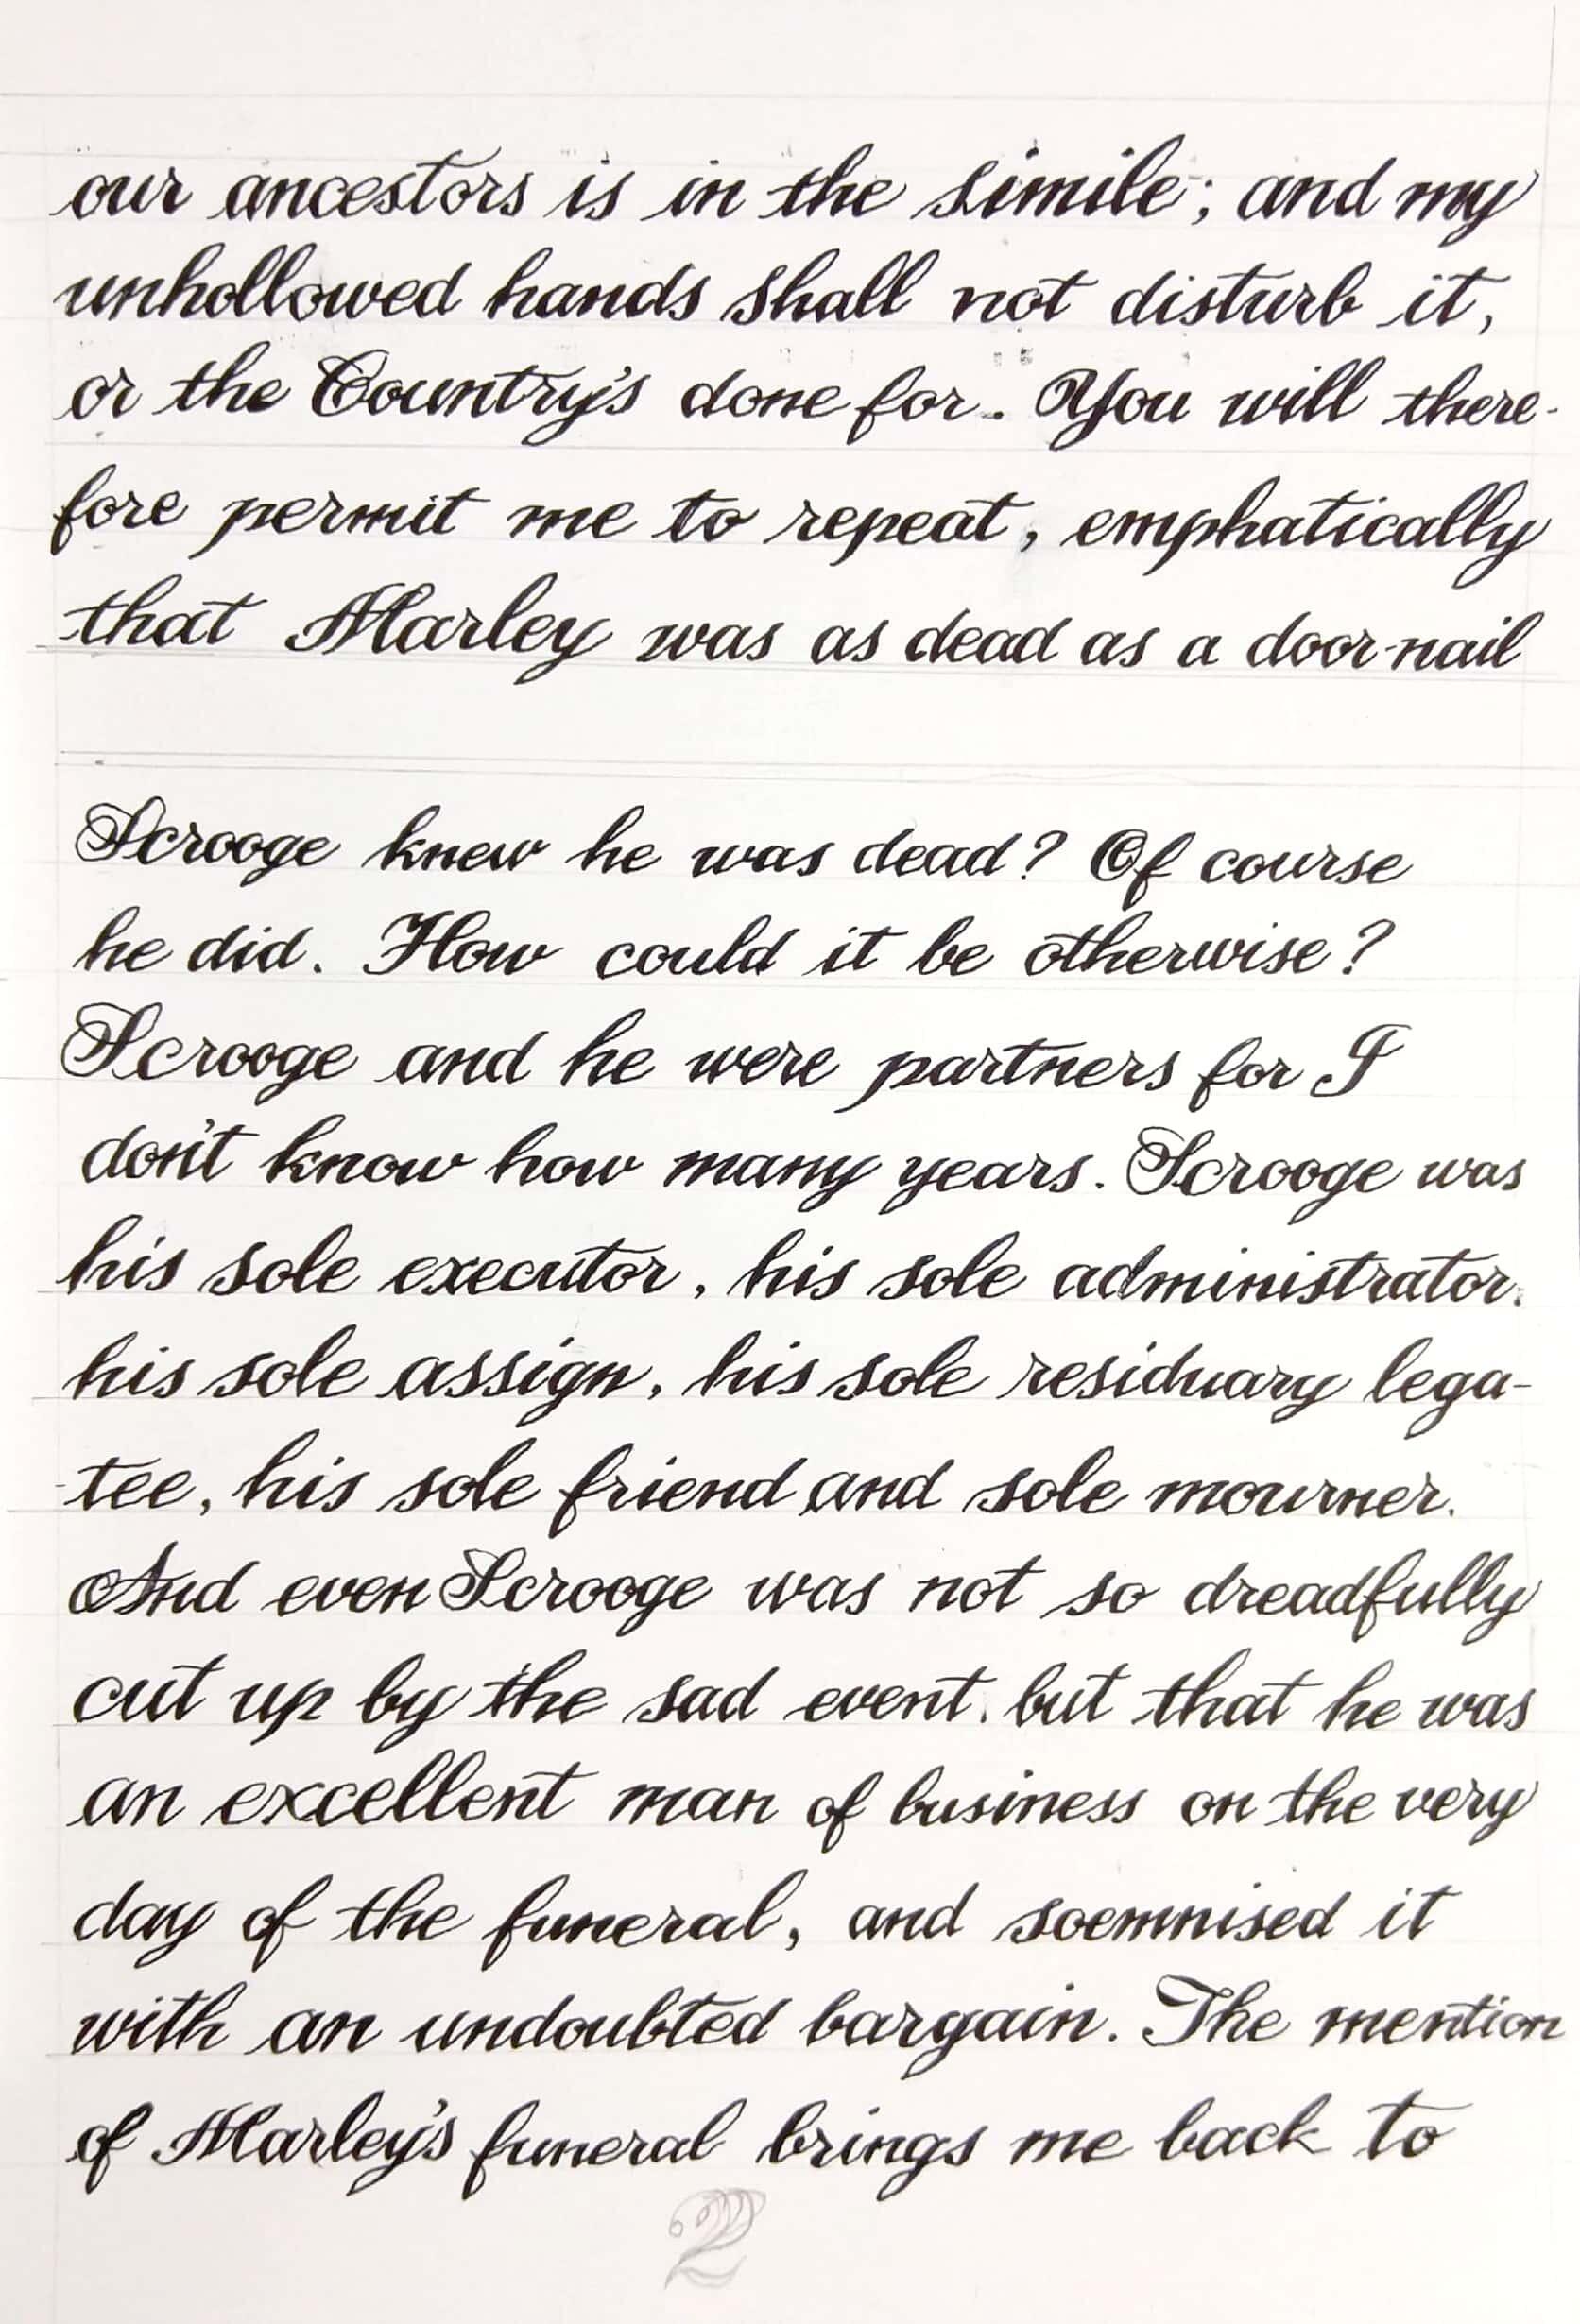 our ancestors is in the simile; and my
unhollowed hands shall not disturb it,
or the Country's done for. You will there-
fore permit me to repeat, emphatically
that Marley was as dead as a door-nail
Scrooge knew he was dead? Of course
he did. How could it be otherwise?
Scrooge and he were partners for I
don't know how many years. Scrooge was
his sole executor, his sole administrator,
his sole assign, his sole residuary lega-
tee, his sole friend and sole mourner.
And even Scrooge was not so dreadfully
cut up by the sad event, but that he was
an excellent man of business on the very
day of the funeral, and soemnised it
with an undoubted bargain. The mention
of Marley's funeral brings me back to
2